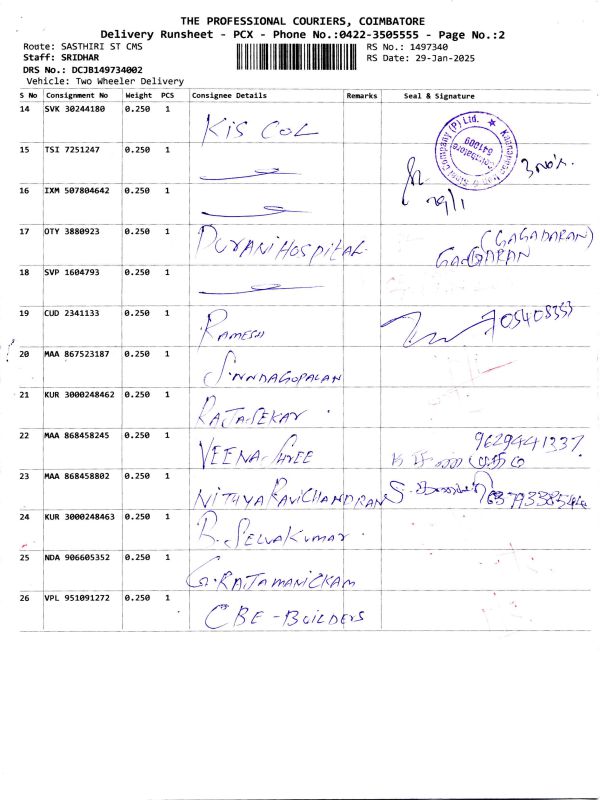 THE PROFESSIONAL COURIERS, COIMBATORE
Delivery Runsheet - PCX - Phone No.:0422-3505555 - Page No.:2
Route: SASTHIRI ST CMS
RS No.: 1497340
Staff: SRIDHAR
RS Date: 29-Jan-2025
DRS No.: DCJB149734002
Vehicle: Two Wheeler Delivery
S No Consignment No Weight PCS Consignee Details Remarks Seal & Signature
14 SVK 30244180 0.250 1 KIS COL
15 TSI 7251247 0.250 1
Coimbatore 641009
29/1
16 IXM 507804642 0.250 1
17 OTY 3880923 0.250 1 PURANI HOSPITAL (GAGADARAN)
18 SVP 1604793 0.250 1
19 CUD 2341133 0.250 1 RAMESH
20 MAA 867523187 0.250 1
21 KUR 3000248462 0.250 1 RAJASEKAR
22 MAA 868458245 0.250 1 VEENA-SHREE 9629441337
23 MAA 868458802 0.250 1 NITHYA RAVICHANDRAN
24 KUR 3000248463 0.250 1 R. SELVAKUMAR
25 NDA 906605352 0.250 1 G. RAJAMANICKAM
26 VPL 951091272 0.250 1 CBE - BUILDERS